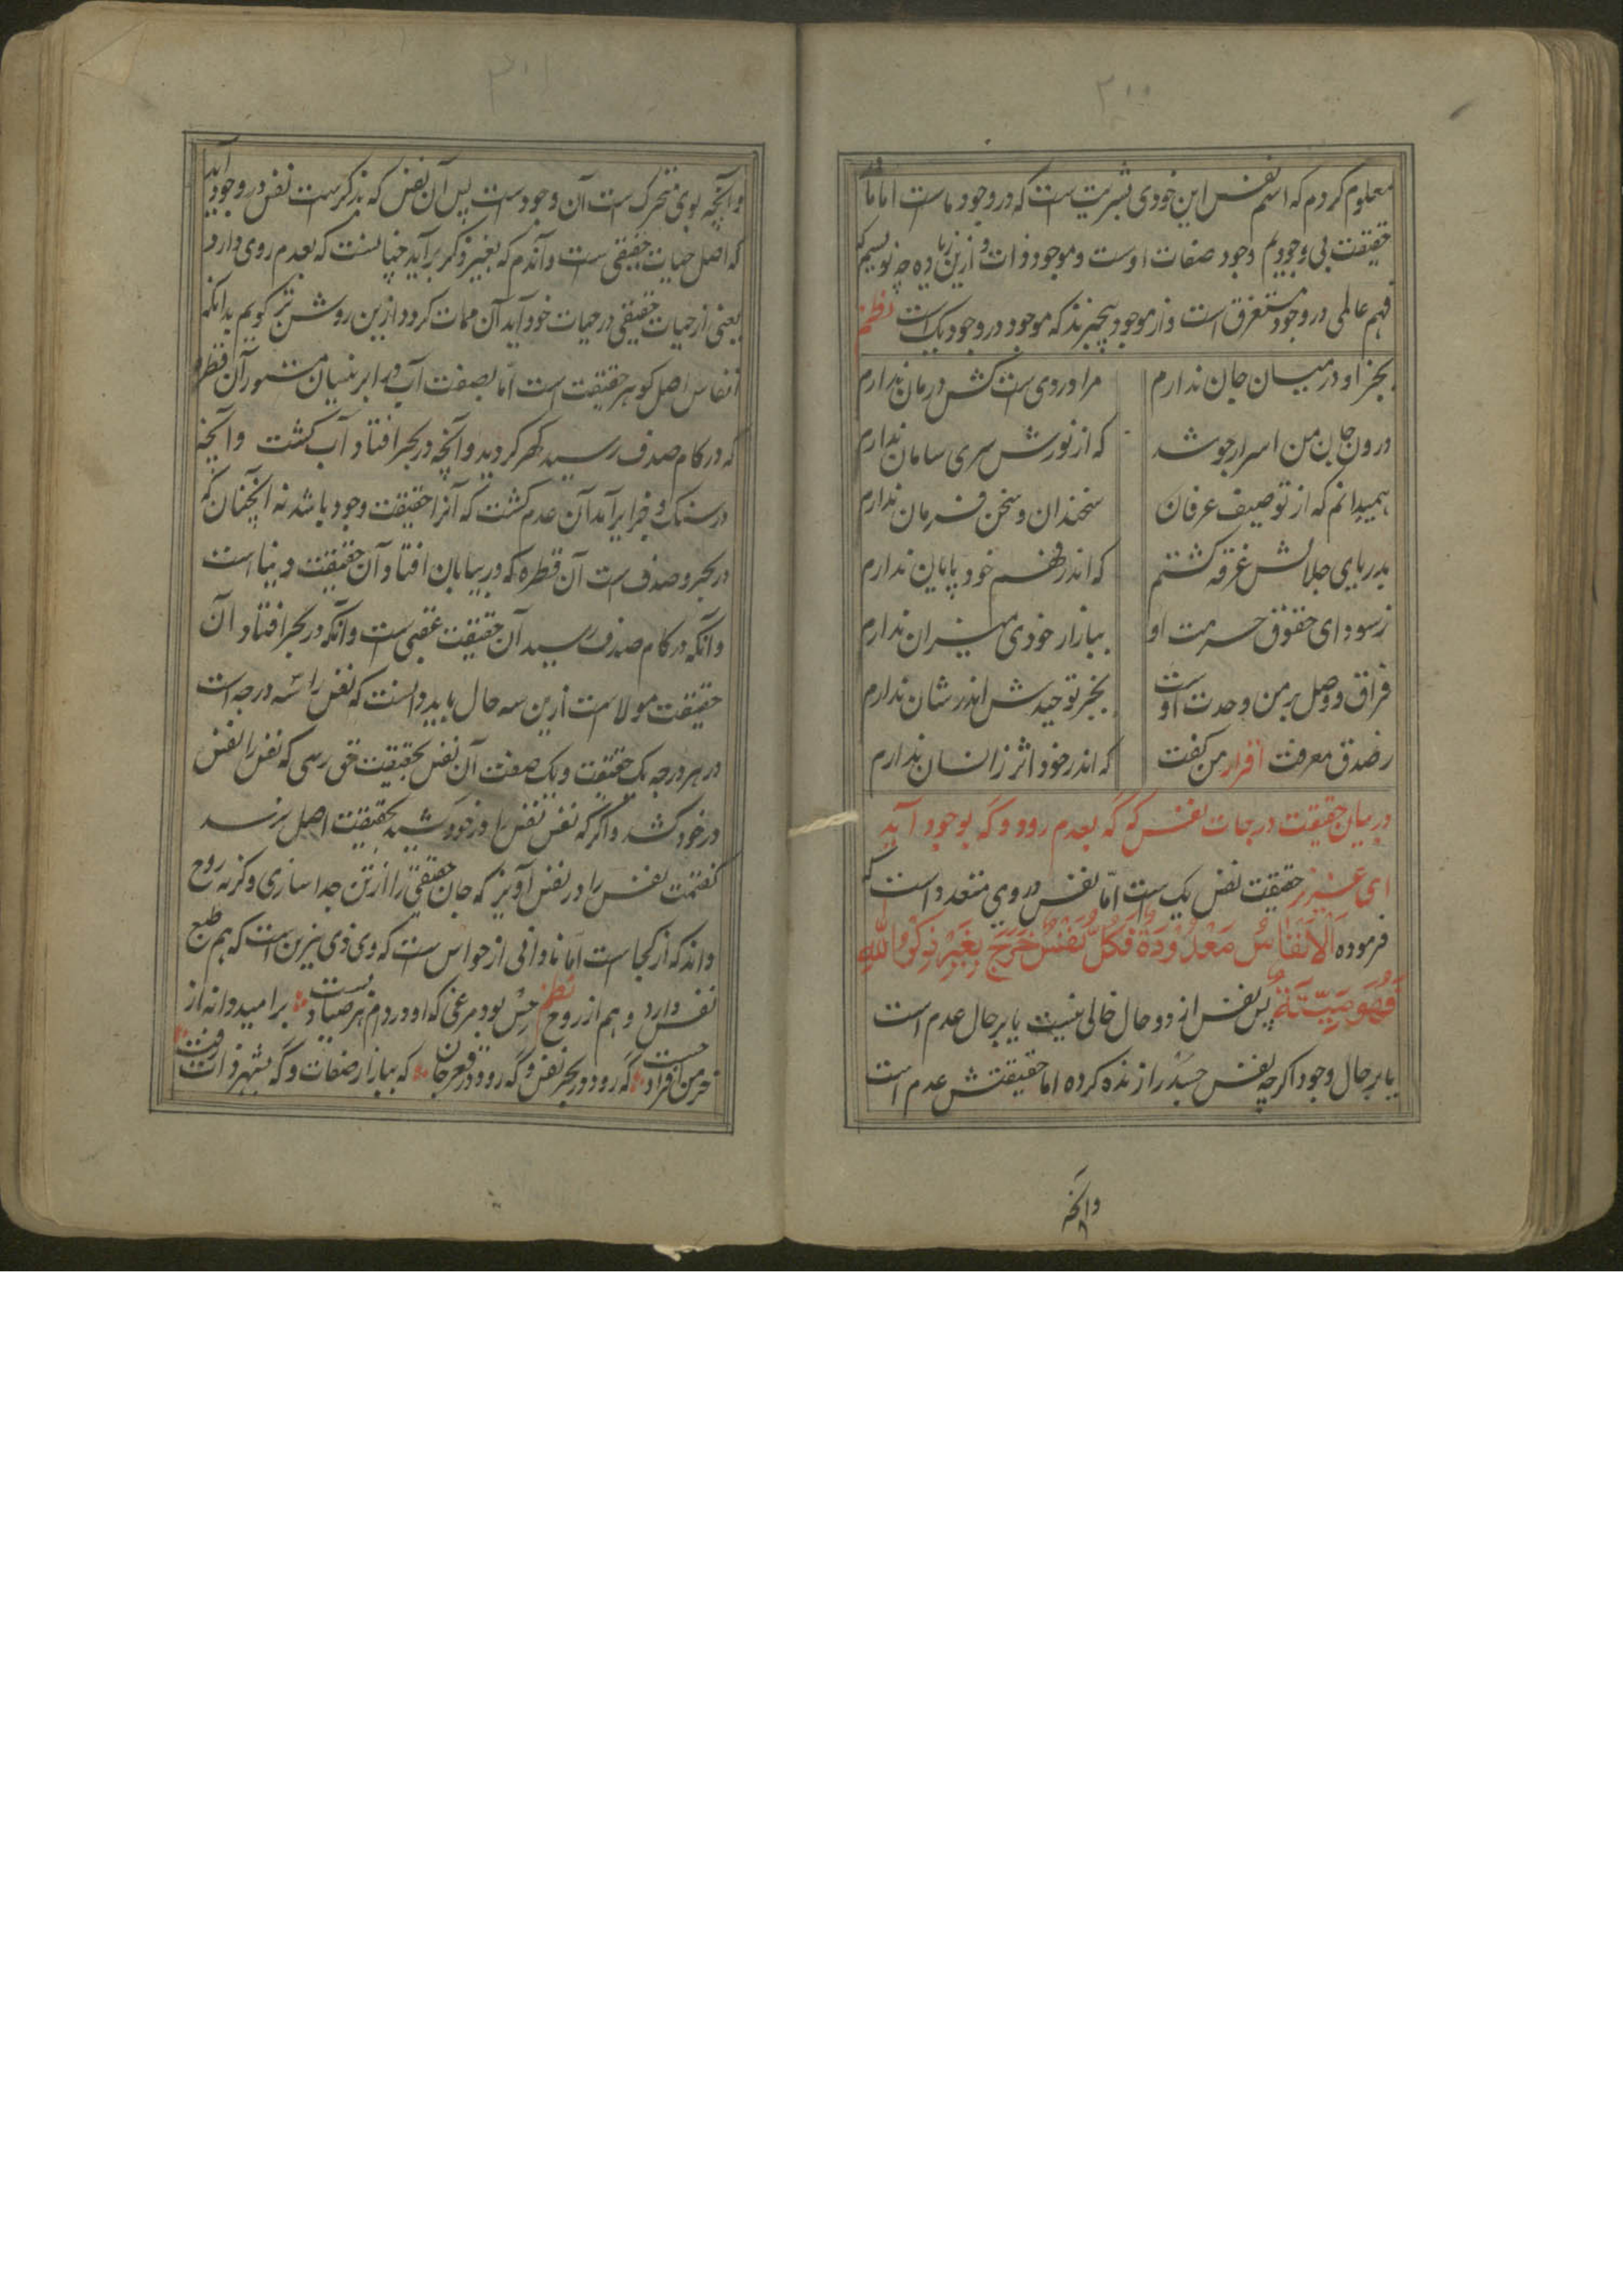 ۳۰۰
معلوم کردم که اسم نفس این خودی بشریت است که در وجود ماست اما ما در
حقیقت بی وجودیم وجود صفات اوست و موجود ذات و ازین زیاده چه نویسیم که
فهم عالمی در وجود مستغرق است و از موجود بیخبرند که موجود در وجود یک است نظم
بجز او در میان جان ندارم مرا دردی است کش درمان ندارم
درون جان من اسرار جوشد که از نورش سری سامان ندارم
همیدانم که از توصیف عرفان سخندان و سخن فرمان ندارم
بدریای جلالش غرقه کشتم که اندر فهم خود پایان ندارم
زسودای حقوق حرمت او ببازار خودی میزان ندارم
فراق و وصل بر من وحدت اوست بجز توحیدش اندر شان ندارم
رصدق معرفت اقرار من کفت که اندر خود اثر زانسان ندارم
در بیان حقیقت درجات نفس که گه بعدم رود و گه بوجود آید
ای عزیز حقیقت نفس یک است اما نفس در وی متعدد است که
فرموده الانفاس معدودة فکل نفس خرج بغیر ذکر الله
فهو میتة پس نفس از دو حال خالی نیست یا بر حال عدم است
یا بر حال وجود اکرچه نفس جسد را زنده کرده اما حقیقتش عدم است
وانچه
۳۰۱
وانچه بوی متحرک است آن وجود است پس آن نفس که بذکرست نفس در وجود آید
که اصل حیات حقیقی است و آندم که بغیر ذکر برآید چنانست که بعدم روی دارد
یعنی از حیات حقیقی در حیات خود آید آن ممات کردد ازین روشن تر کویم بدانکه
انفاس اصل کوهر حقیقت است اما بصفت آب در ابر نیسان مشهور آن قطره
که در کام صدف رسید کهر کردید و آنچه در بحر افتاد آب کشت و آنچه
در سنک و خرا برآمد آن عدم کشت که آنرا حقیقت وجود باشد نه آنچنان که
در بحر و صدف است آن قطره که در بیابان افتاد آن حقیقت دنیا است
و آنکه در کام صدف رسید آن حقیقت عقبی است و آنکه در بحر افتاد آن
حقیقت مولا است ازین سه حال باید دانست که نفس را سه درجه است
در هر درجه یک حقیقت و یک صفت آن نفس بحقیقت حق رسی که نفس را نفس
در خود کشد و اکر که نفس نفس را در خود کشید بحقیقت اصل برسد
کفتمت نفس را در نفس آویز که جان حقیقی را از تن جدا سازی وکرنه روح
داند که از کجا است اما نادانی از حواس است که وی ذی نیزین است که هم طبع
نفس دارد و هم از روح نظم حس بود مرغی که او در دام هر صیاد بست بر امید دانه از
خرمن افراد جست گه رود در بحر نفس و گه رود در قعر جان که ببازار صفات و گه بشهر ذات رفت